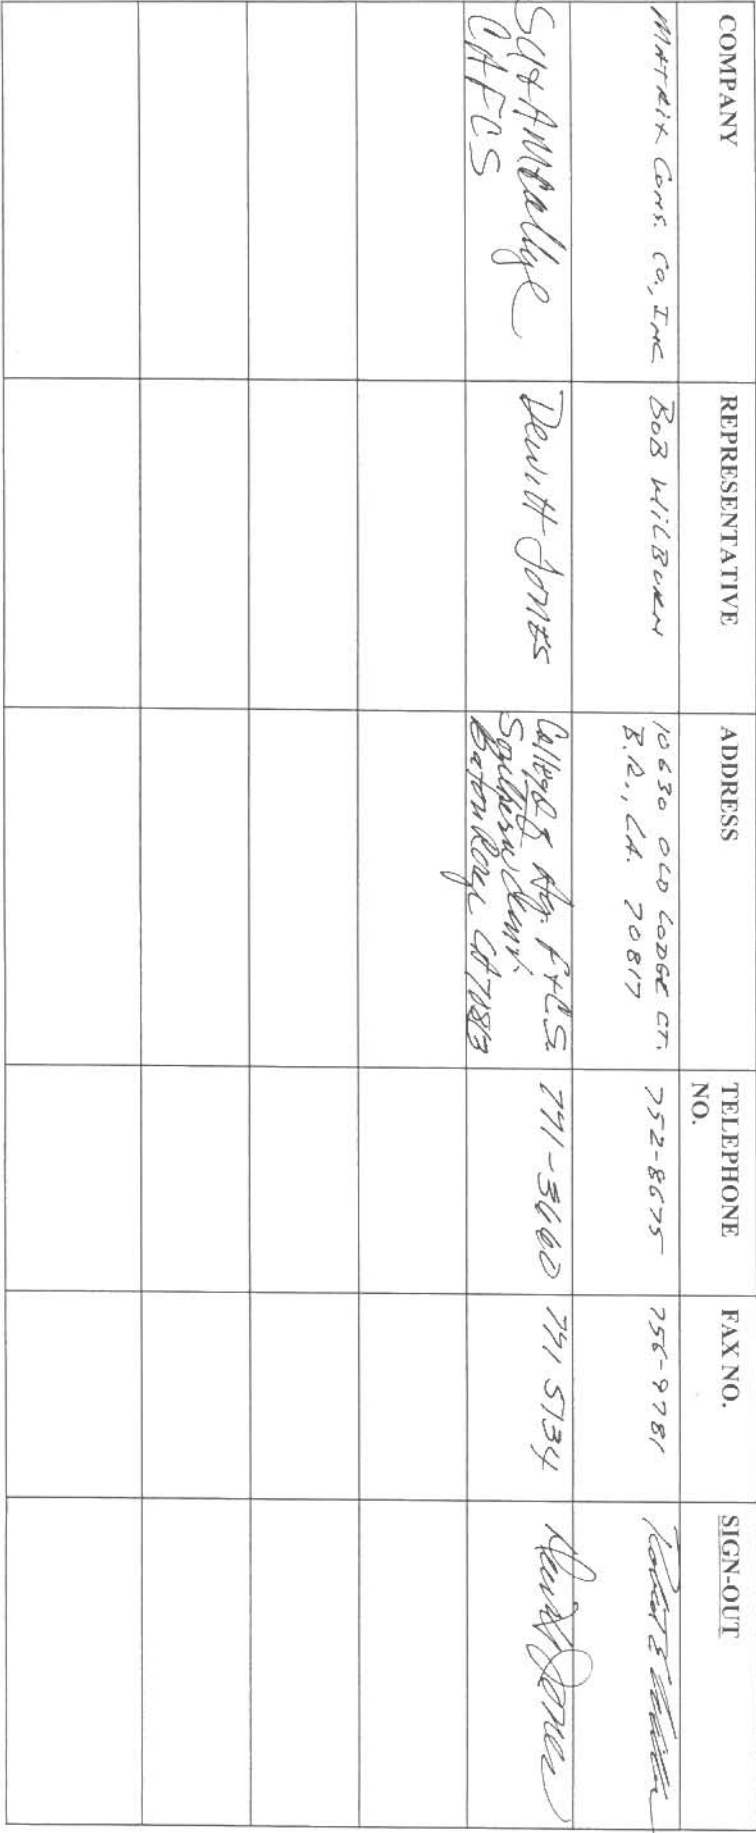 COMPANY
REPRESENTATIVE
ADDRESS
TELEPHONE
NO.
FAX NO.
SIGN-OUT
MATRIX CONS. CO., INC
BOB WILBURN
10630 OLD LODGE CT.
B.R., LA. 70817
752-8675
756-9781
CAFCS
Dewitt Jones
College of Ag. F+CS
Southern Univ.
Baton Rouge LA 70813
771-3660
771 5134
Dewitt Jones